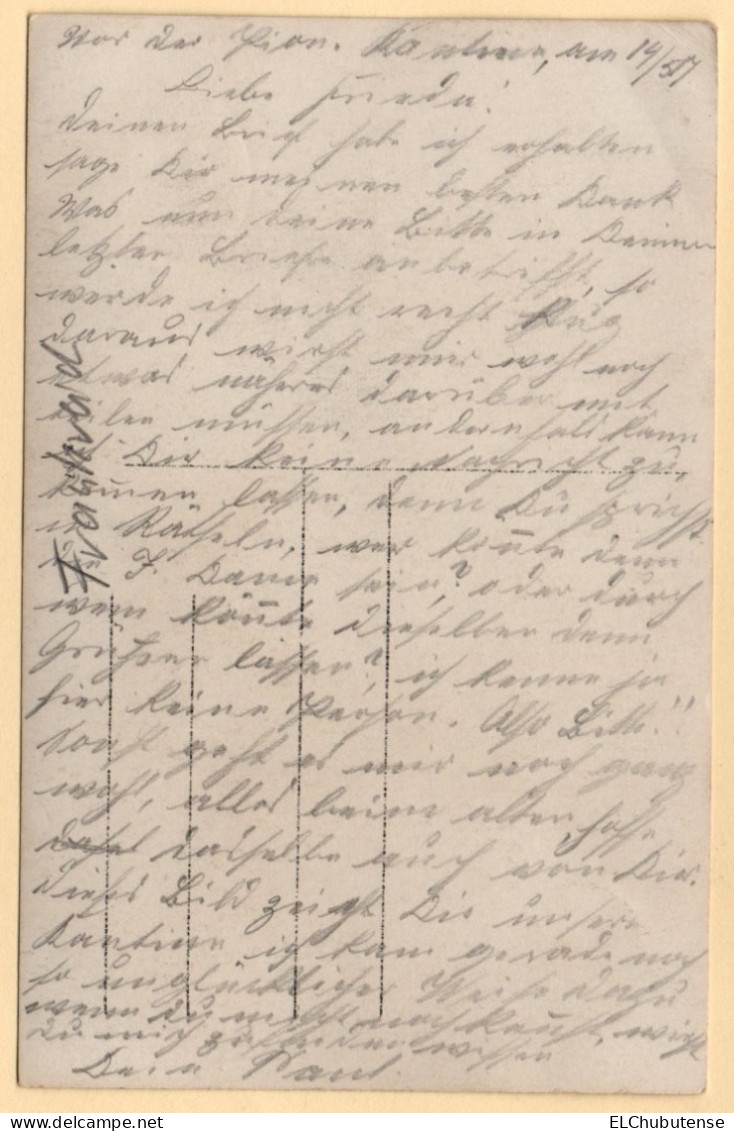 Vor der Pion. Kantine, am 14/5 17
Liebe Frieda!
Deinen Brief habe ich erhalten
sage Dir meinen besten Dank
Was nun deine Bitte in Deinem
letzten Briefe anbetrifft, so
werde ich nicht recht klug
daraus wirst mir wohl noch
etwas näheres darüber mit
teilen müssen, andernfals kann
ich Dir keine Nachricht zu,
kommen lassen, denn Du sprichst
in Rätseln, wer könnte denn
die F. Dame sein? oder durch
wem könnte dieselber denn
Grüßen lassen? ich kenne ja
hier keine Person. Also Bitte!!
Sonst geht es mir noch ganz
wohl, alles beim alten, hoffe
dasselbe auch von Dir.
dieses Bild zeigt Dir unsere
Kantine ich kam gerade noch
so unglücklicher Weise dazu
wenn du mich noch kennst, wirst
du mich zu finden wissen
Dein Paul.
Frankreich
ELChubutense